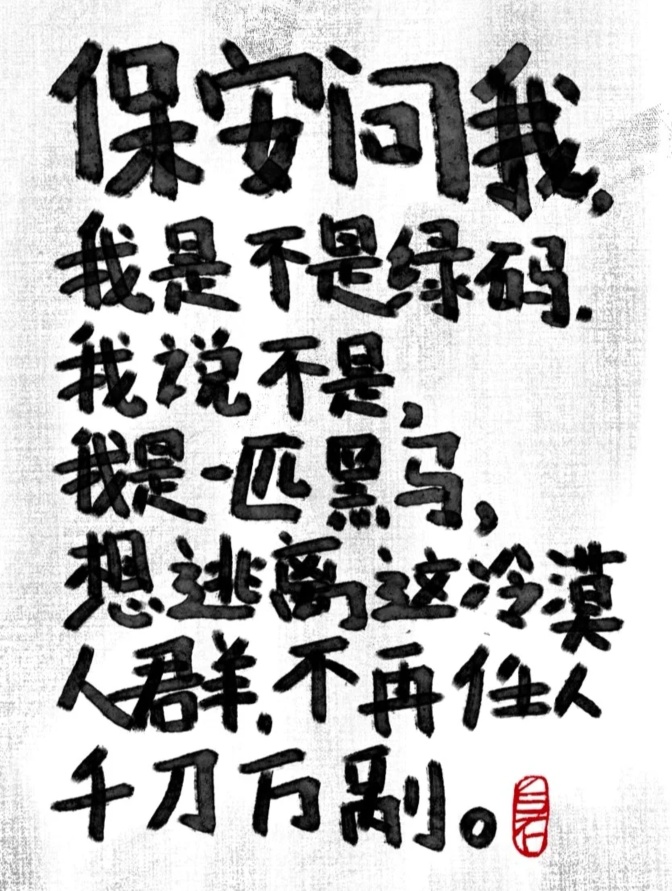 保安问我,
我是不是绿码.
我说不是,
我是一匹黑马,
想逃离这冷漠
人群.不再任人
千刀万剐。